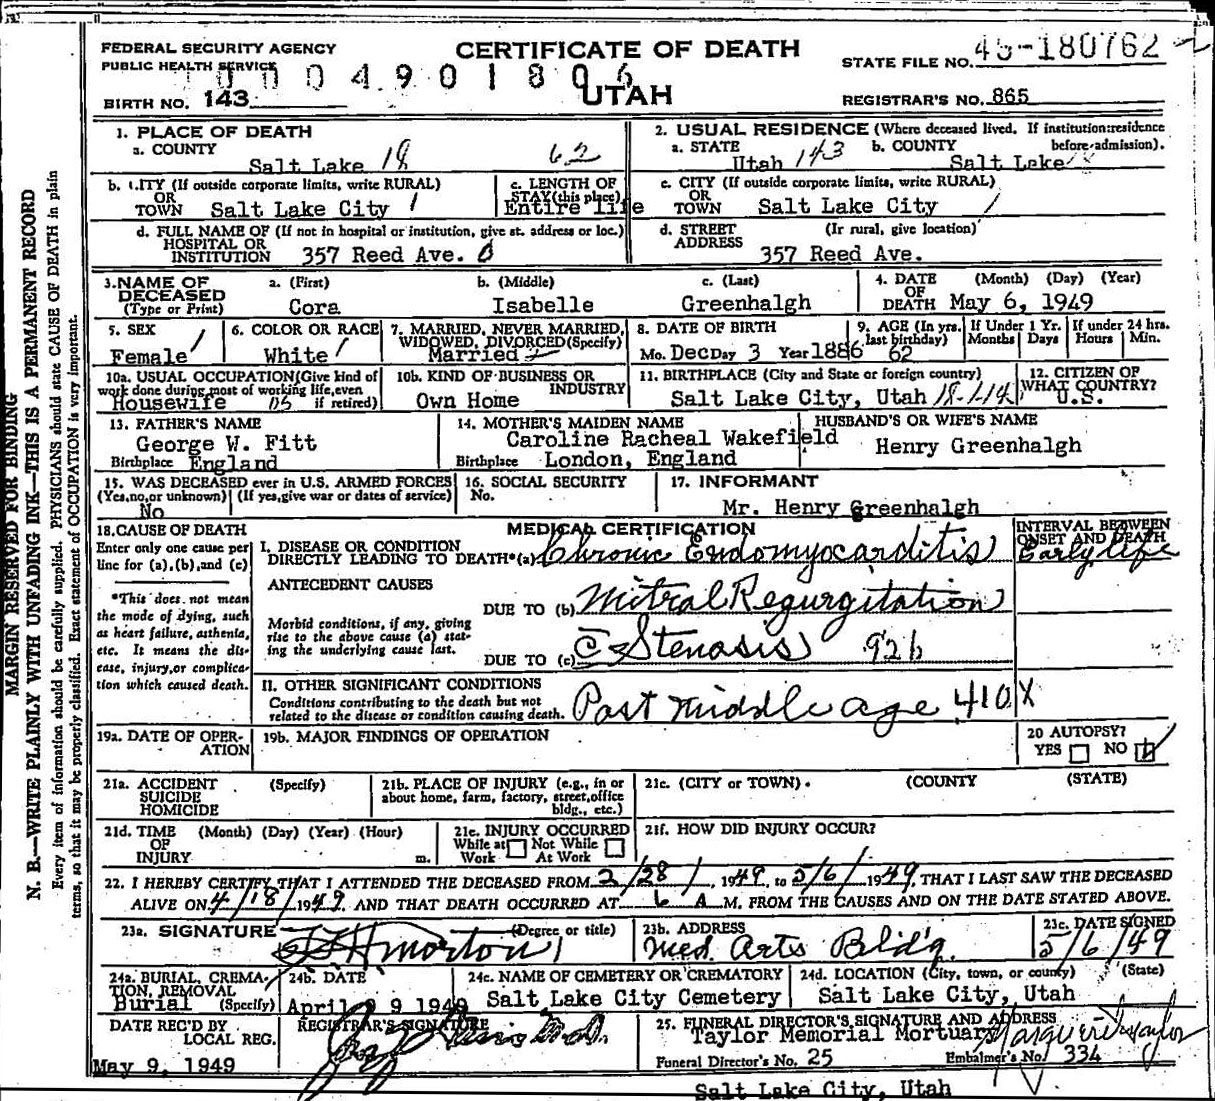 FEDERAL SECURITY AGENCY
PUBLIC HEALTH SERVICE
CERTIFICATE OF DEATH
UTAH
STATE FILE NO. 45-180762
BIRTH NO. 143
REGISTRAR'S NO. 865
1. PLACE OF DEATH
a. COUNTY Salt Lake 18 62
2. USUAL RESIDENCE (Where deceased lived. If institution:residence before admission).
a. STATE Utah 143 b. COUNTY Salt Lake
b. CITY (If outside corporate limits, write RURAL)
OR TOWN Salt Lake City 1
c. LENGTH OF STAY (this place) Entire life
c. CITY (If outside corporate limits, write RURAL)
OR TOWN Salt Lake City /
d. FULL NAME OF (If not in hospital or institution, give st. address or loc.)
HOSPITAL OR INSTITUTION 357 Reed Ave. 0
d. STREET ADDRESS (Ir rural, give location)
357 Reed Ave.
3. NAME OF DECEASED (Type or Print)
a. (First) Cora
b. (Middle) Isabelle
c. (Last) Greenhalgh
4. DATE OF DEATH (Month) (Day) (Year)
May 6, 1949
5. SEX Female
6. COLOR OR RACE White
7. MARRIED, NEVER MARRIED, WIDOWED, DIVORCED (Specify) Married
8. DATE OF BIRTH
Mo. Dec Day 3 Year 1886
9. AGE (In yrs. last birthday) 62
If Under 1 Yr. Months Days
If under 24 hrs. Hours Min.
10a. USUAL OCCUPATION (Give kind of work done during most of working life, even if retired) Housewife
10b. KIND OF BUSINESS OR INDUSTRY Own Home
11. BIRTHPLACE (City and State or foreign country)
Salt Lake City, Utah
12. CITIZEN OF WHAT COUNTRY? U.S.
13. FATHER'S NAME
George W. Fitt
Birthplace England
14. MOTHER'S MAIDEN NAME
Caroline Racheal Wakefield
Birthplace London, England
HUSBAND'S OR WIFE'S NAME
Henry Greenhalgh
15. WAS DECEASED ever in U.S. ARMED FORCES
(Yes, no, or unknown) (If yes, give war or dates of service)
No
16. SOCIAL SECURITY No.
17. INFORMANT
Mr. Henry Greenhalgh
18. CAUSE OF DEATH
Enter only one cause per line for (a), (b), and (c)
*This does not mean the mode of dying, such as heart failure, asthenia, etc. It means the disease, injury, or complication which caused death.
MEDICAL CERTIFICATION
I. DISEASE OR CONDITION
DIRECTLY LEADING TO DEATH*(a) Chronic Endomyocarditis
INTERVAL BETWEEN ONSET AND DEATH
Early life
ANTECEDENT CAUSES
DUE TO (b) Mitral Regurgitation
Morbid conditions, if any, giving rise to the above cause (a) stating the underlying cause last.
DUE TO (c) c̄ Stenosis 92b
II. OTHER SIGNIFICANT CONDITIONS
Conditions contributing to the death but not related to the disease or condition causing death.
Past middle age 410X
19a. DATE OF OPERATION
19b. MAJOR FINDINGS OF OPERATION
20 AUTOPSY?
YES NO
21a. ACCIDENT SUICIDE HOMICIDE (Specify)
21b. PLACE OF INJURY (e.g., in or about home, farm, factory, street, office bldg., etc.)
21c. (CITY or TOWN). (COUNTY (STATE)
21d. TIME OF INJURY (Month) (Day) (Year) (Hour) m.
21e. INJURY OCCURRED
While at Work Not While At Work
21f. HOW DID INJURY OCCUR?
22. I HEREBY CERTIFY THAT I ATTENDED THE DECEASED FROM 2/28/, 1949, to 5/6/, 1949, THAT I LAST SAW THE DECEASED
ALIVE ON 4/18/, 1949. AND THAT DEATH OCCURRED AT 6 A M. FROM THE CAUSES AND ON THE DATE STATED ABOVE.
23a. SIGNATURE (Degree or title)
23b. ADDRESS
Med. Arts Bldg.
23c. DATE SIGNED
5/6/49
24a. BURIAL, CREMATION, REMOVAL (Specify) Burial
24b. DATE
April 9 1949
24c. NAME OF CEMETERY OR CREMATORY
Salt Lake City Cemetery
24d. LOCATION (City, town, or county) (State)
Salt Lake City, Utah
DATE REC'D BY LOCAL REG.
May 9, 1949
REGISTRAR'S SIGNATURE
25. FUNERAL DIRECTOR'S SIGNATURE AND ADDRESS
Taylor Memorial Mortuary
Funeral Director's No. 25
Embalmer's No. 334
Salt Lake City, Utah
MARGIN RESERVED FOR BINDING
N. B.—WRITE PLAINLY WITH UNFADING INK—THIS IS A PERMANENT RECORD
Every item of information should be carefully supplied. PHYSICIANS should state CAUSE OF DEATH in plain
terms, so that it may be properly classified. Exact statement of OCCUPATION is very important.